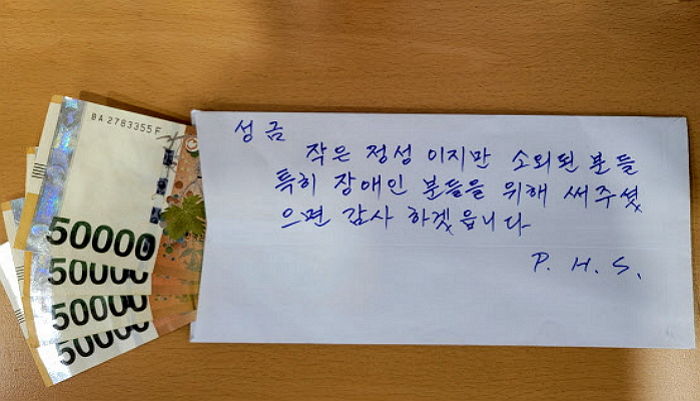 BA2783355F
50000
50000
50000
50000
성금
작은 정성 이지만 소외된 분들
특히 장애인 분들을 위해 써주셨
으면 감사 하겠읍니다
P. H. S.